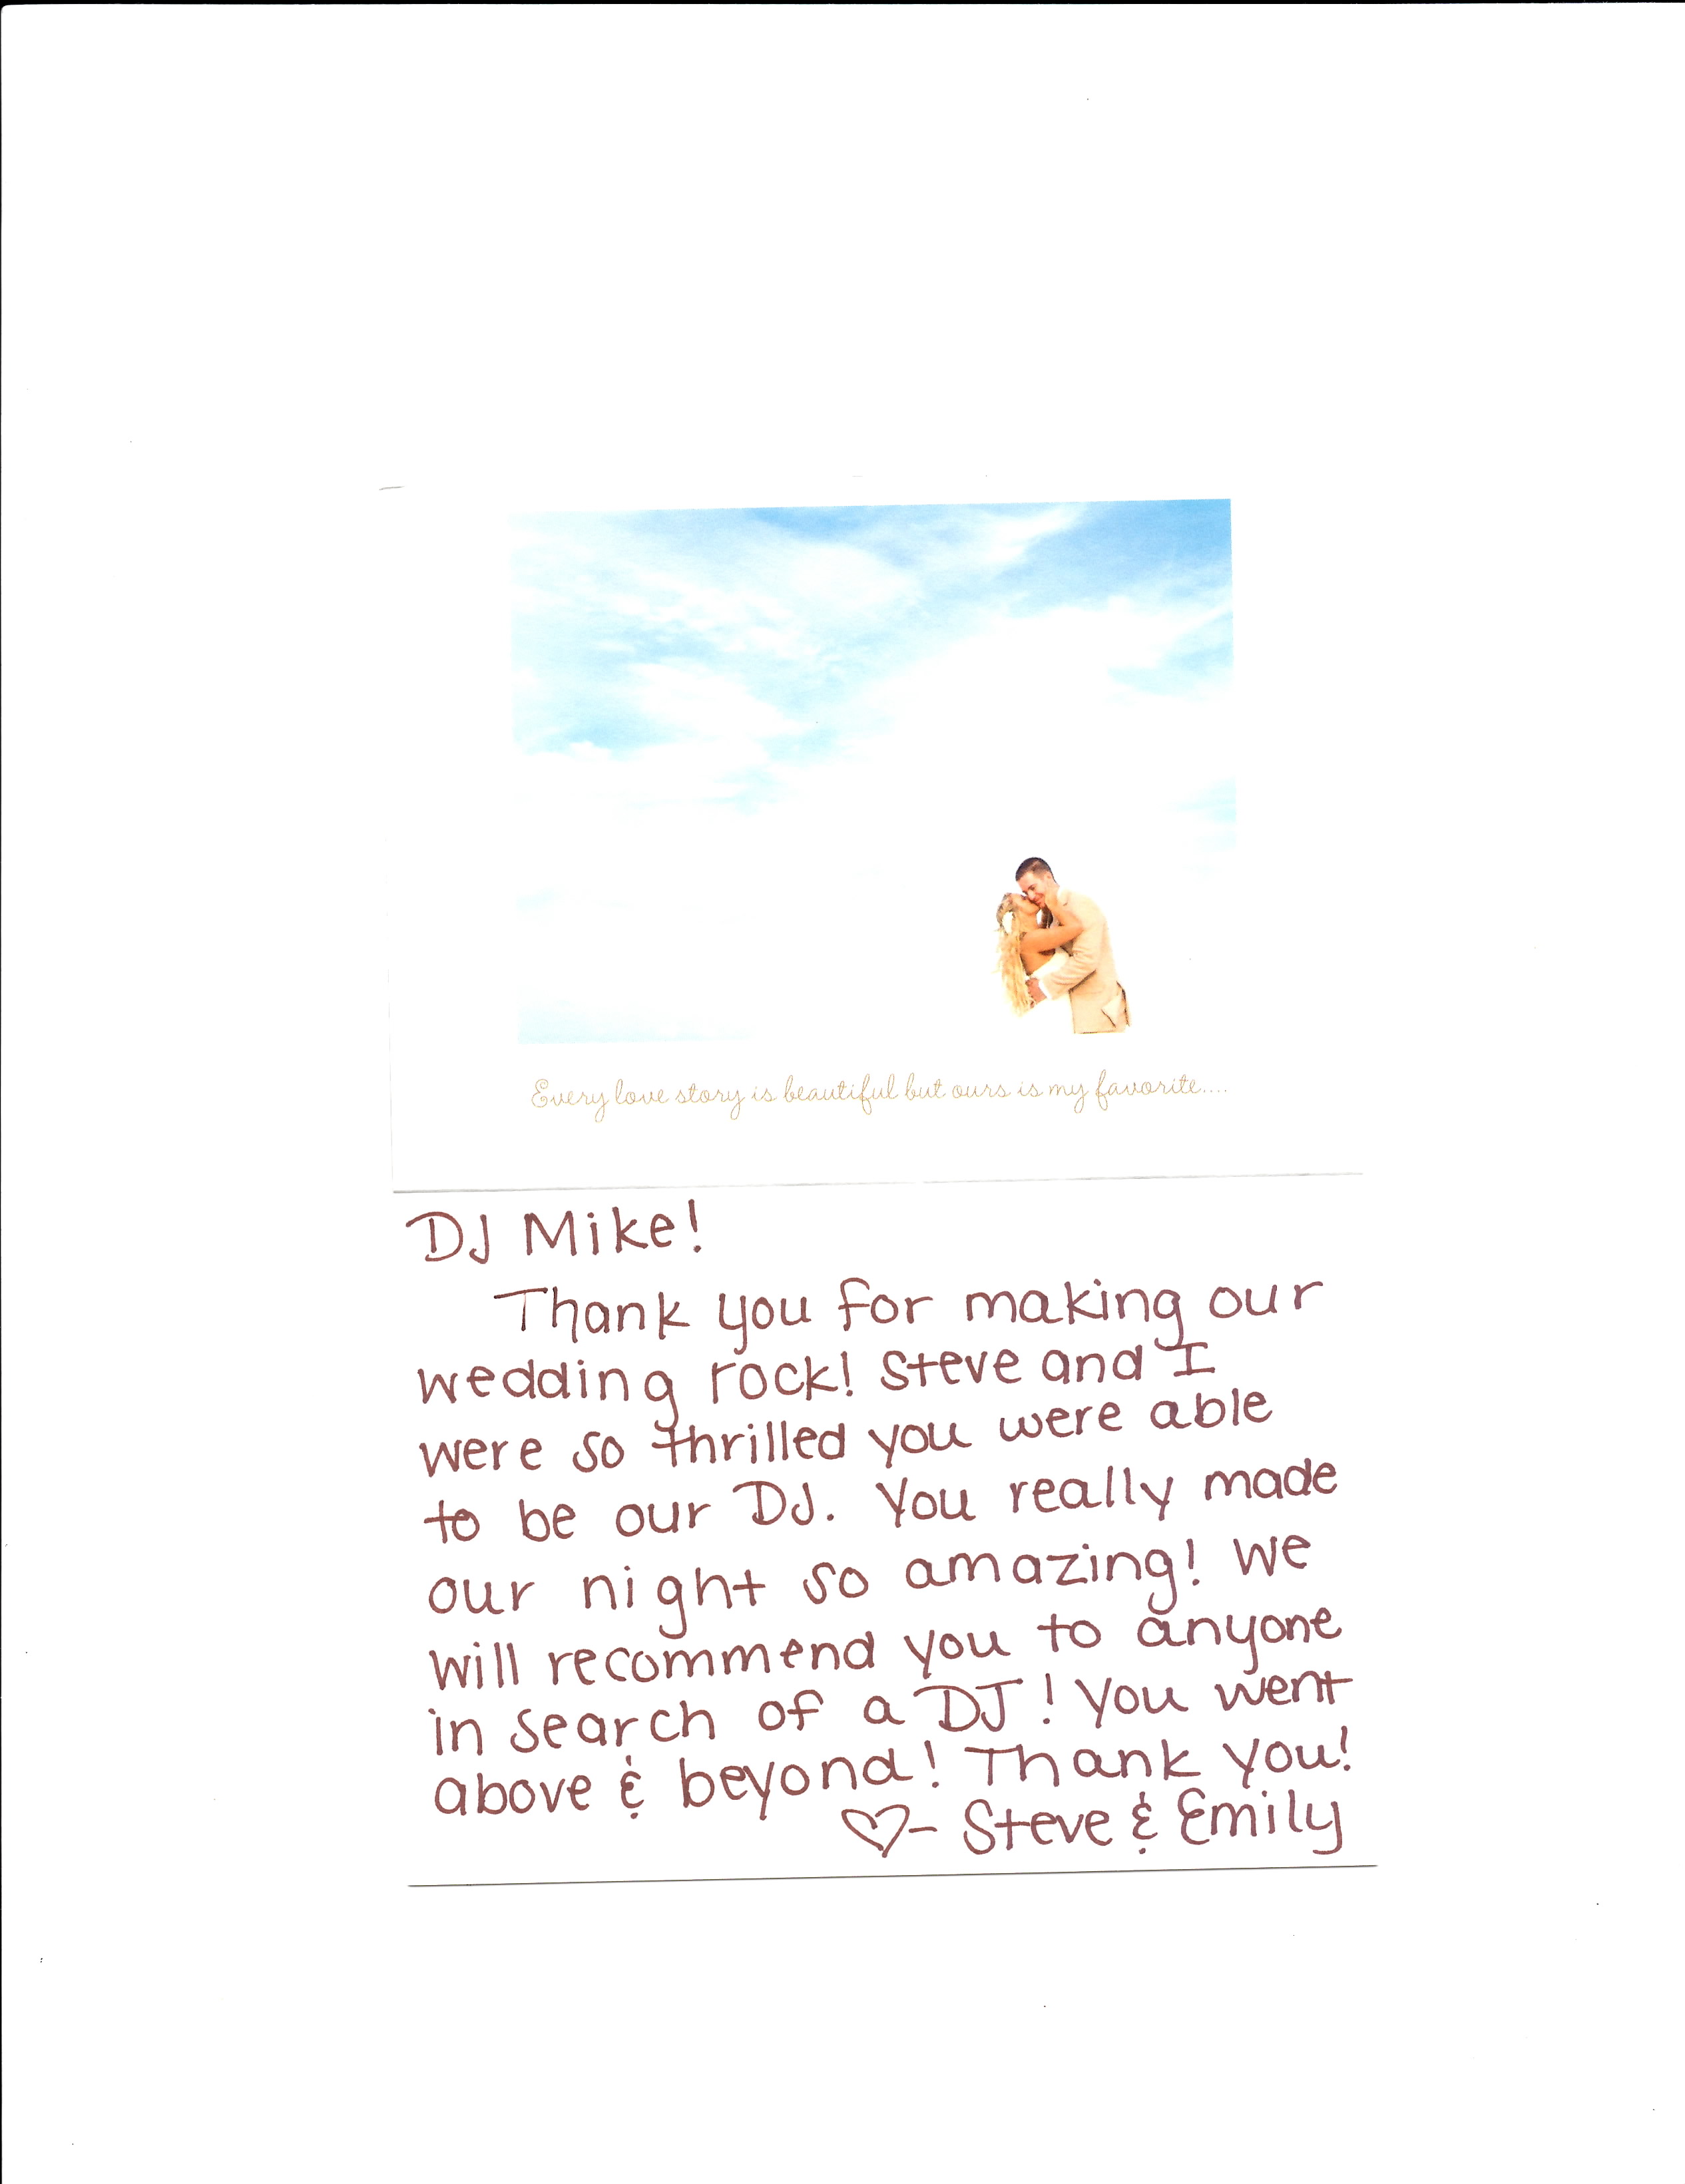 Every love story is beautiful but ours is my favorite....
DJ Mike!
Thank you for making our
wedding rock! Steve and I
were so thrilled you were able
to be our DJ. You really made
our night so amazing! We
will recommend you to anyone
in search of a DJ! You went
above & beyond! Thank you!
♡- Steve & Emily